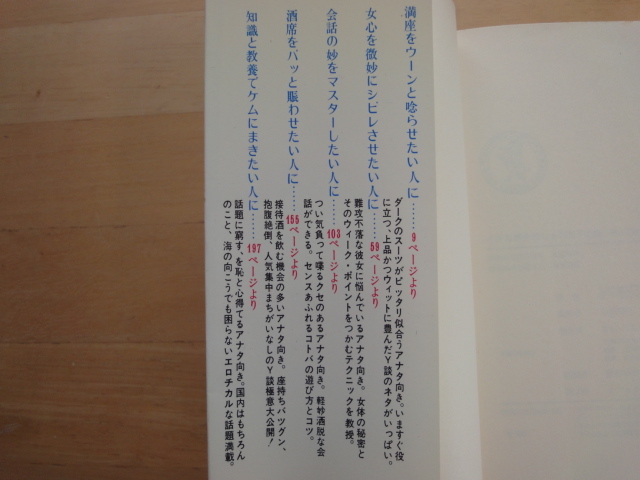 満座をウーンと唸らせたい人に……9ページより
ダークのスーツがピッタリ似合うアナタ向き。いますぐ役
に立つ、上品かつウィットに豊んだY談のネタがいっぱい。
女心を微妙にシビレさせたい人に……59ページより
難攻不落な彼女に悩んでいるアナタ向き。女体の秘密と
そのウィーク・ポイントをつかむテクニックを教授。
会話の妙をマスターしたい人に……103ページより
つい気負って喋るクセのあるアナタ向き。軽妙洒脱な会
話ができる。センスあふれるコトバの遊び方とコツ。
酒席をパッと賑わせたい人に……155ページより
接待酒を飲む機会の多いアナタ向き。座持ちバツグン、
抱腹絶倒、人気集中まちがいなしのY談極意大公開!
知識と教養でケムにまきたい人に……197ページより
話題に窮す、を恥と心得てるアナタ向き。国内はもちろん
のこと、海の向こうでも困らないエロチカルな話題満載。